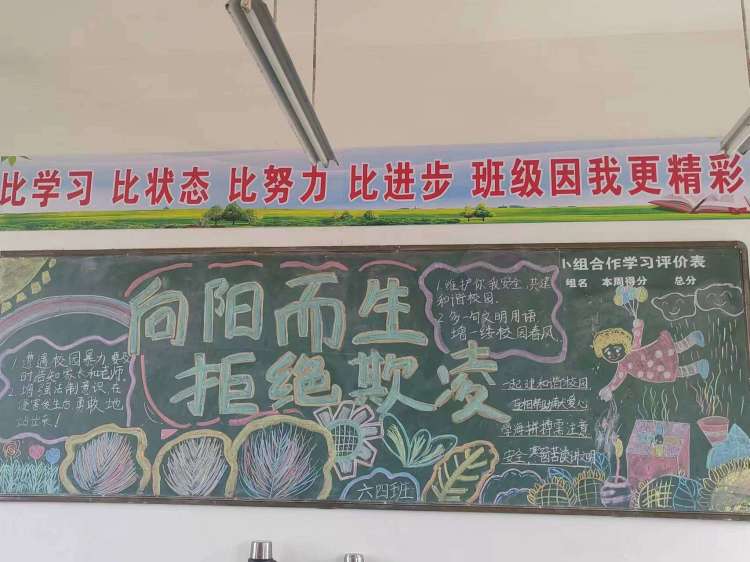 比学习 比状态 比努力 比进步 班级因我更精彩
向阳而生
拒绝欺凌
1. 遭遇校园暴力要及
时告知家长和老师
2. 增强法制意识,在
侵害发生后勇敢地
站出来!
1. 维护你我安全,共建
和谐校园.
2. 多一句文明用语,
增一缕校园春风.
小组合作学习评价表
组名 本周得分 总分
一起建和谐校园
互相帮助献爱心
学海拼搏需注意
安全
六四班